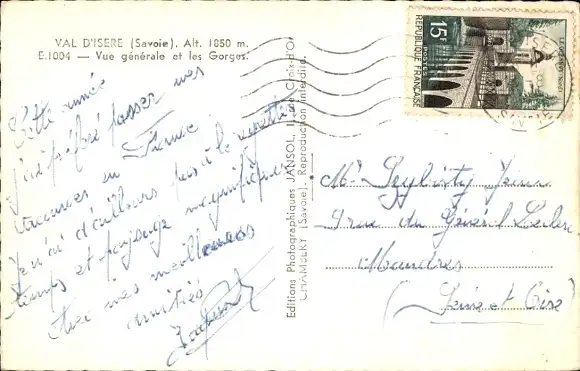 VAL D'ISERE (Savoie). Alt. 1850 m.
E.1004 — Vue générale et les Gorges.
Cette année
j'ai préféré passer mes
vacances en France
Je n'ai d'ailleurs pas à le regretter
temps et paysage magnifiques
Avec mes meilleures
amitiés
Editions Photographiques JANSOL, 11, rue Croix-d'Or
CHAMBÉRY (Savoie). Reproduction interdite.
15F
POSTES
RÉPUBLIQUE FRANÇAISE
Mr
rue du Général Leclerc
Mandres
(Seine et Oise)